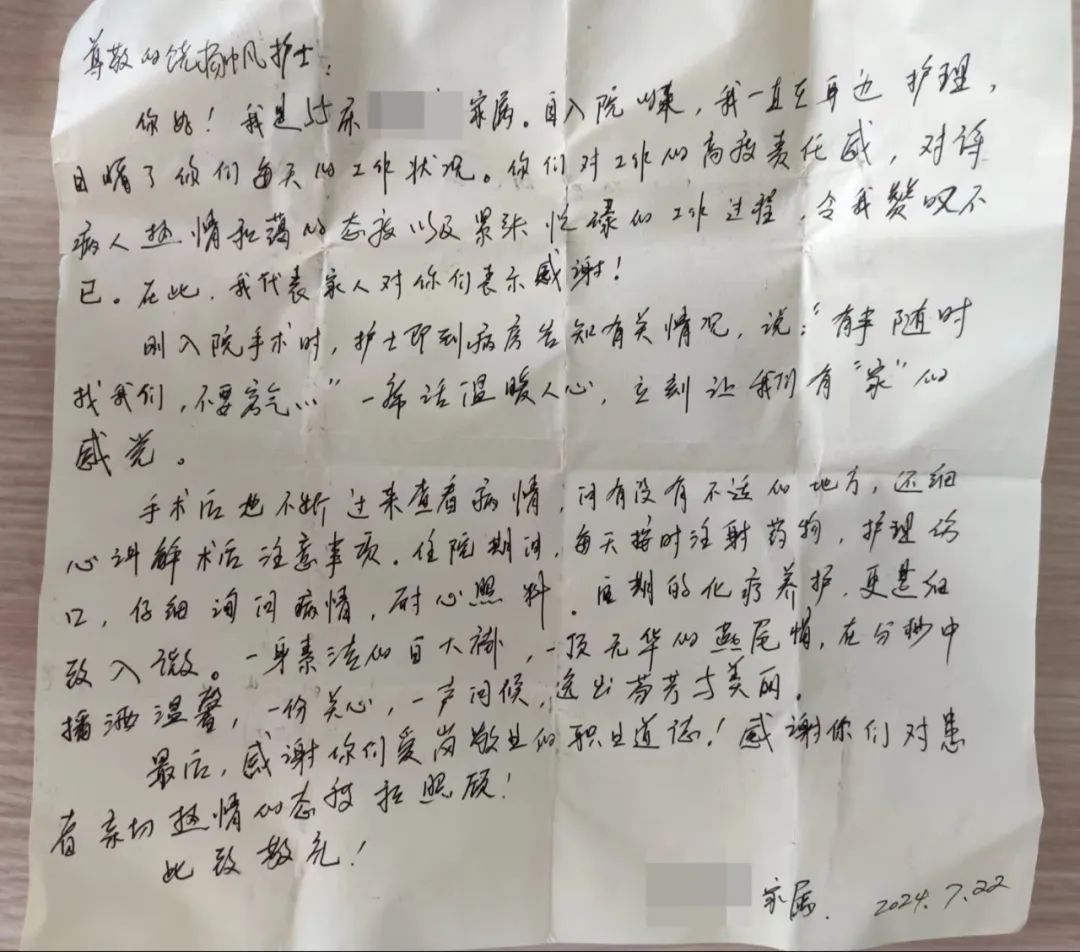 尊敬的饶扬帆护士:
你好！我是15床 家属。自入院以来，我一直在身边护理，
目睹了你们每天的工作状况。你们对工作的高度责任感，对待
病人热情和蔼的态度以及紧张忙碌的工作过程，令我赞叹不
已。在此，我代表家人对你们表示感谢！
刚入院手术时，护士即到病房告知有关情况，说："有事随时
找我们，不要客气…"一席话温暖人心，立刻让我们有"家"的
感觉。
手术后也不断过来查看病情，问有没有不适的地方，还细
心讲解术后注意事项。住院期间，每天按时注射药物，护理伤
口，仔细询问病情，耐心照料。后期的化疗养护，更是细
致入微。一身素洁的白大褂，一顶无华的燕尾帽，在分秒中
播洒温馨，一份关心，一声问候，送出芬芳与美丽。
最后，感谢你们爱岗敬业的职业道德！感谢你们对患
者亲切热情的态度和照顾！
此致敬礼！
家属. 2024.7.22